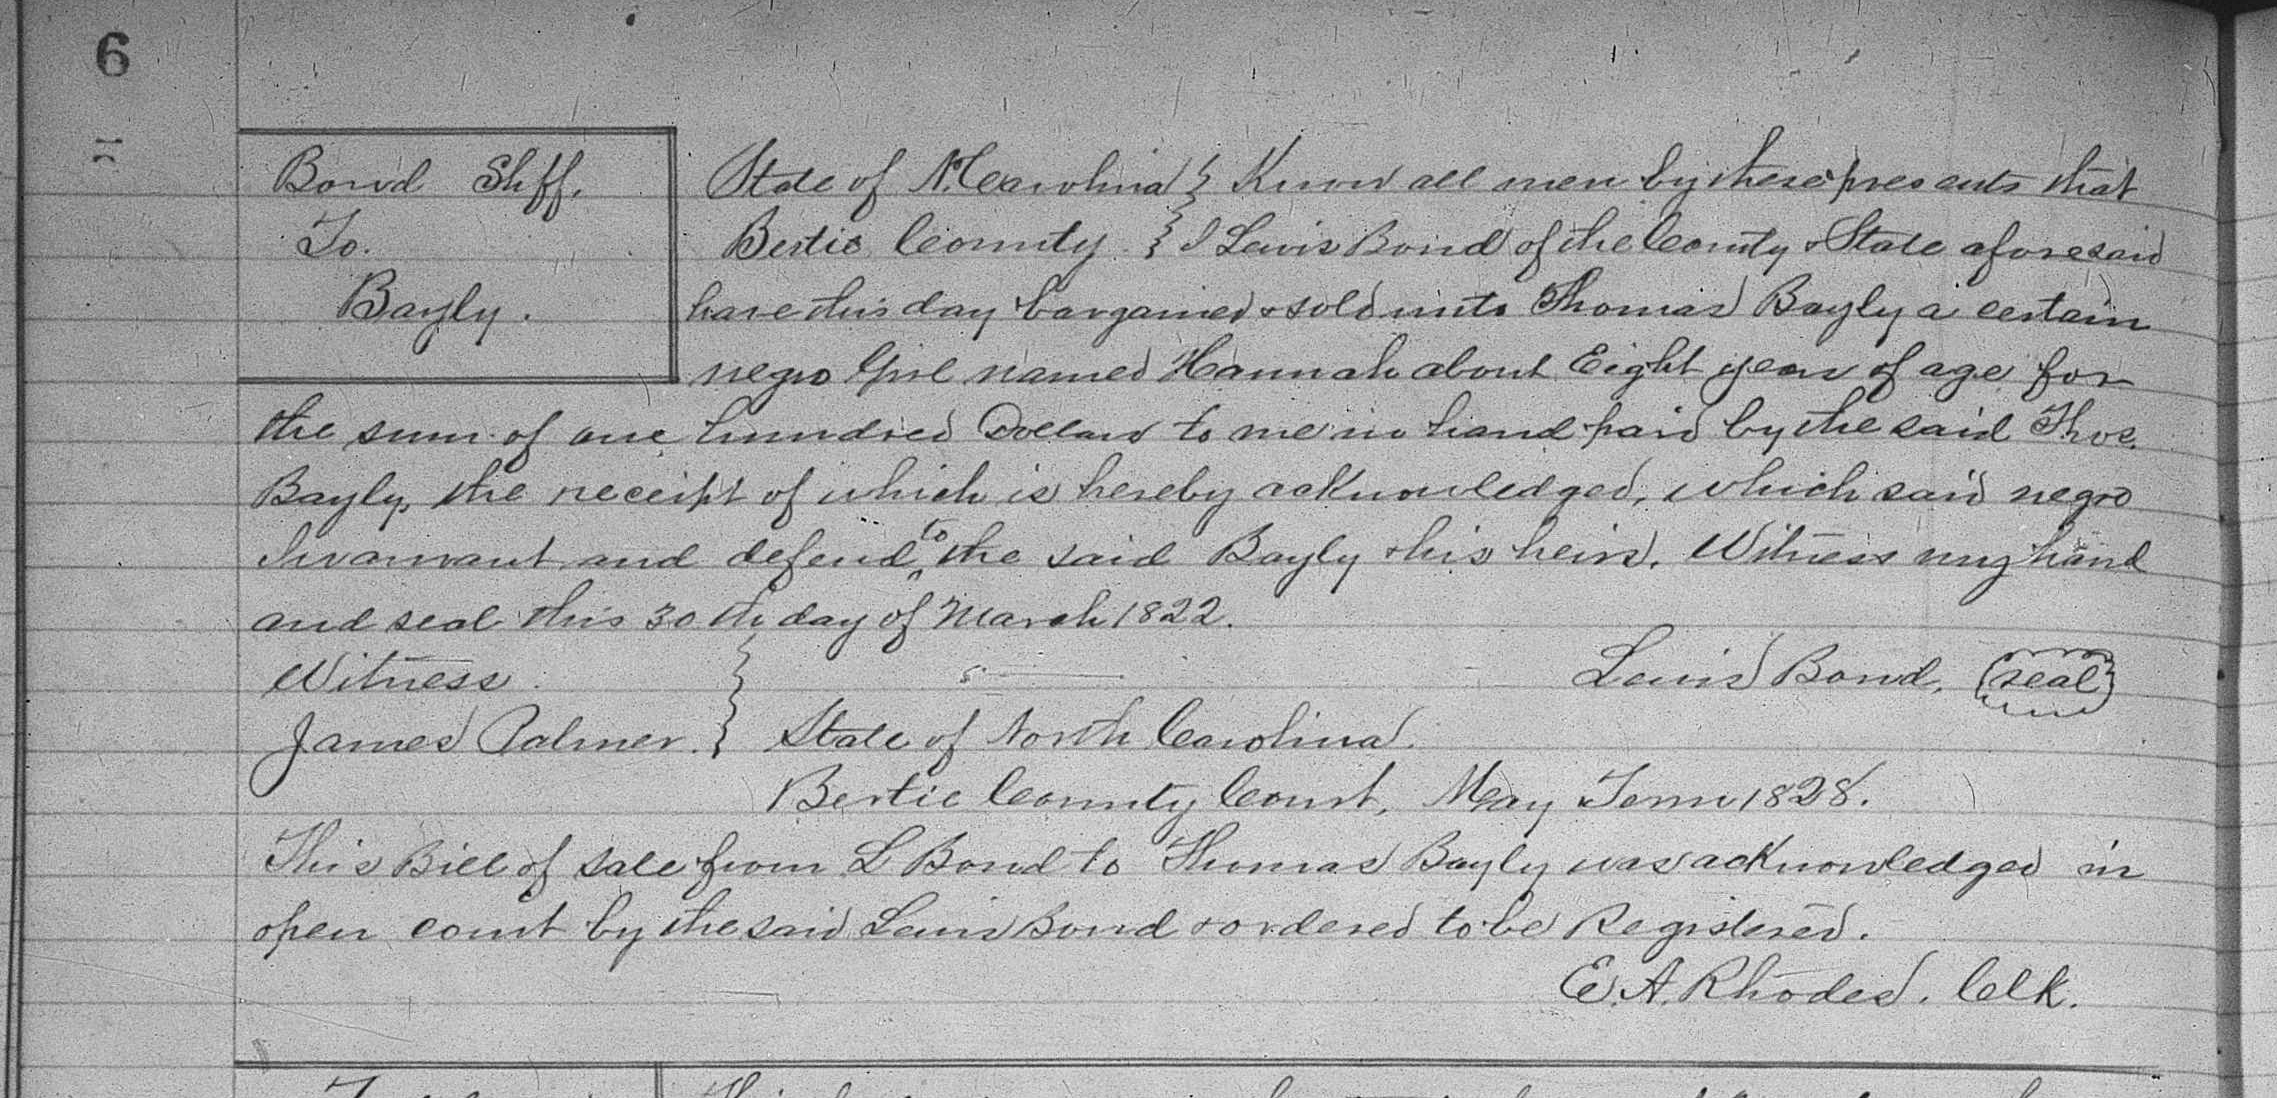 6
Bond Shff.
To.
Bayly.
State of N. Carolina } Know all men by these presents that
Bertie County. } I Lewis Bond of the County & State aforesaid
have this day bargained & sold unto Thomas Bayly a certain
negro Girl named Hannah about Eight years of age for
the sum of one hundred Dollars to me in hand paid by the said Thos.
Bayly, the receipt of which is hereby acknowledged, which said negro
I warrant and defend to the said Bayly & his heirs. Witness my hand
and seal this 30th day of March 1822.
Witness. } Lewis Bond. seal
James Palmer. } State of North Carolina.
Bertie County Court, May Term 1828.
This Bill of Sale from L Bond to Thomas Bayly was acknowledged in
open court by the said Lewis Bond & ordered to be Registered.
E. A. Rhodes. Clk.